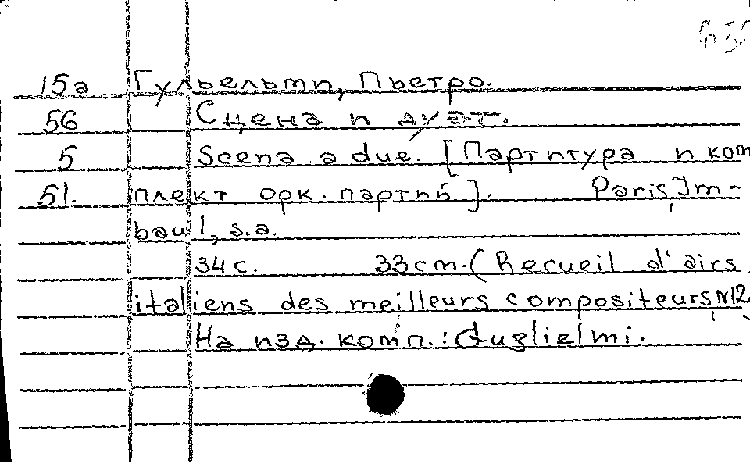 15а Гульельми, Пьетро.
5б Сцена и дуэт.
5 Scena a due. [Партитура и ком
51. плект орк. партий]. Paris, Im-
baul, s.a.
34 с. 33 cm. (Recueil d'airs
italiens des meilleurs compositeurs N12
На изд. комп.: Guglielmi.